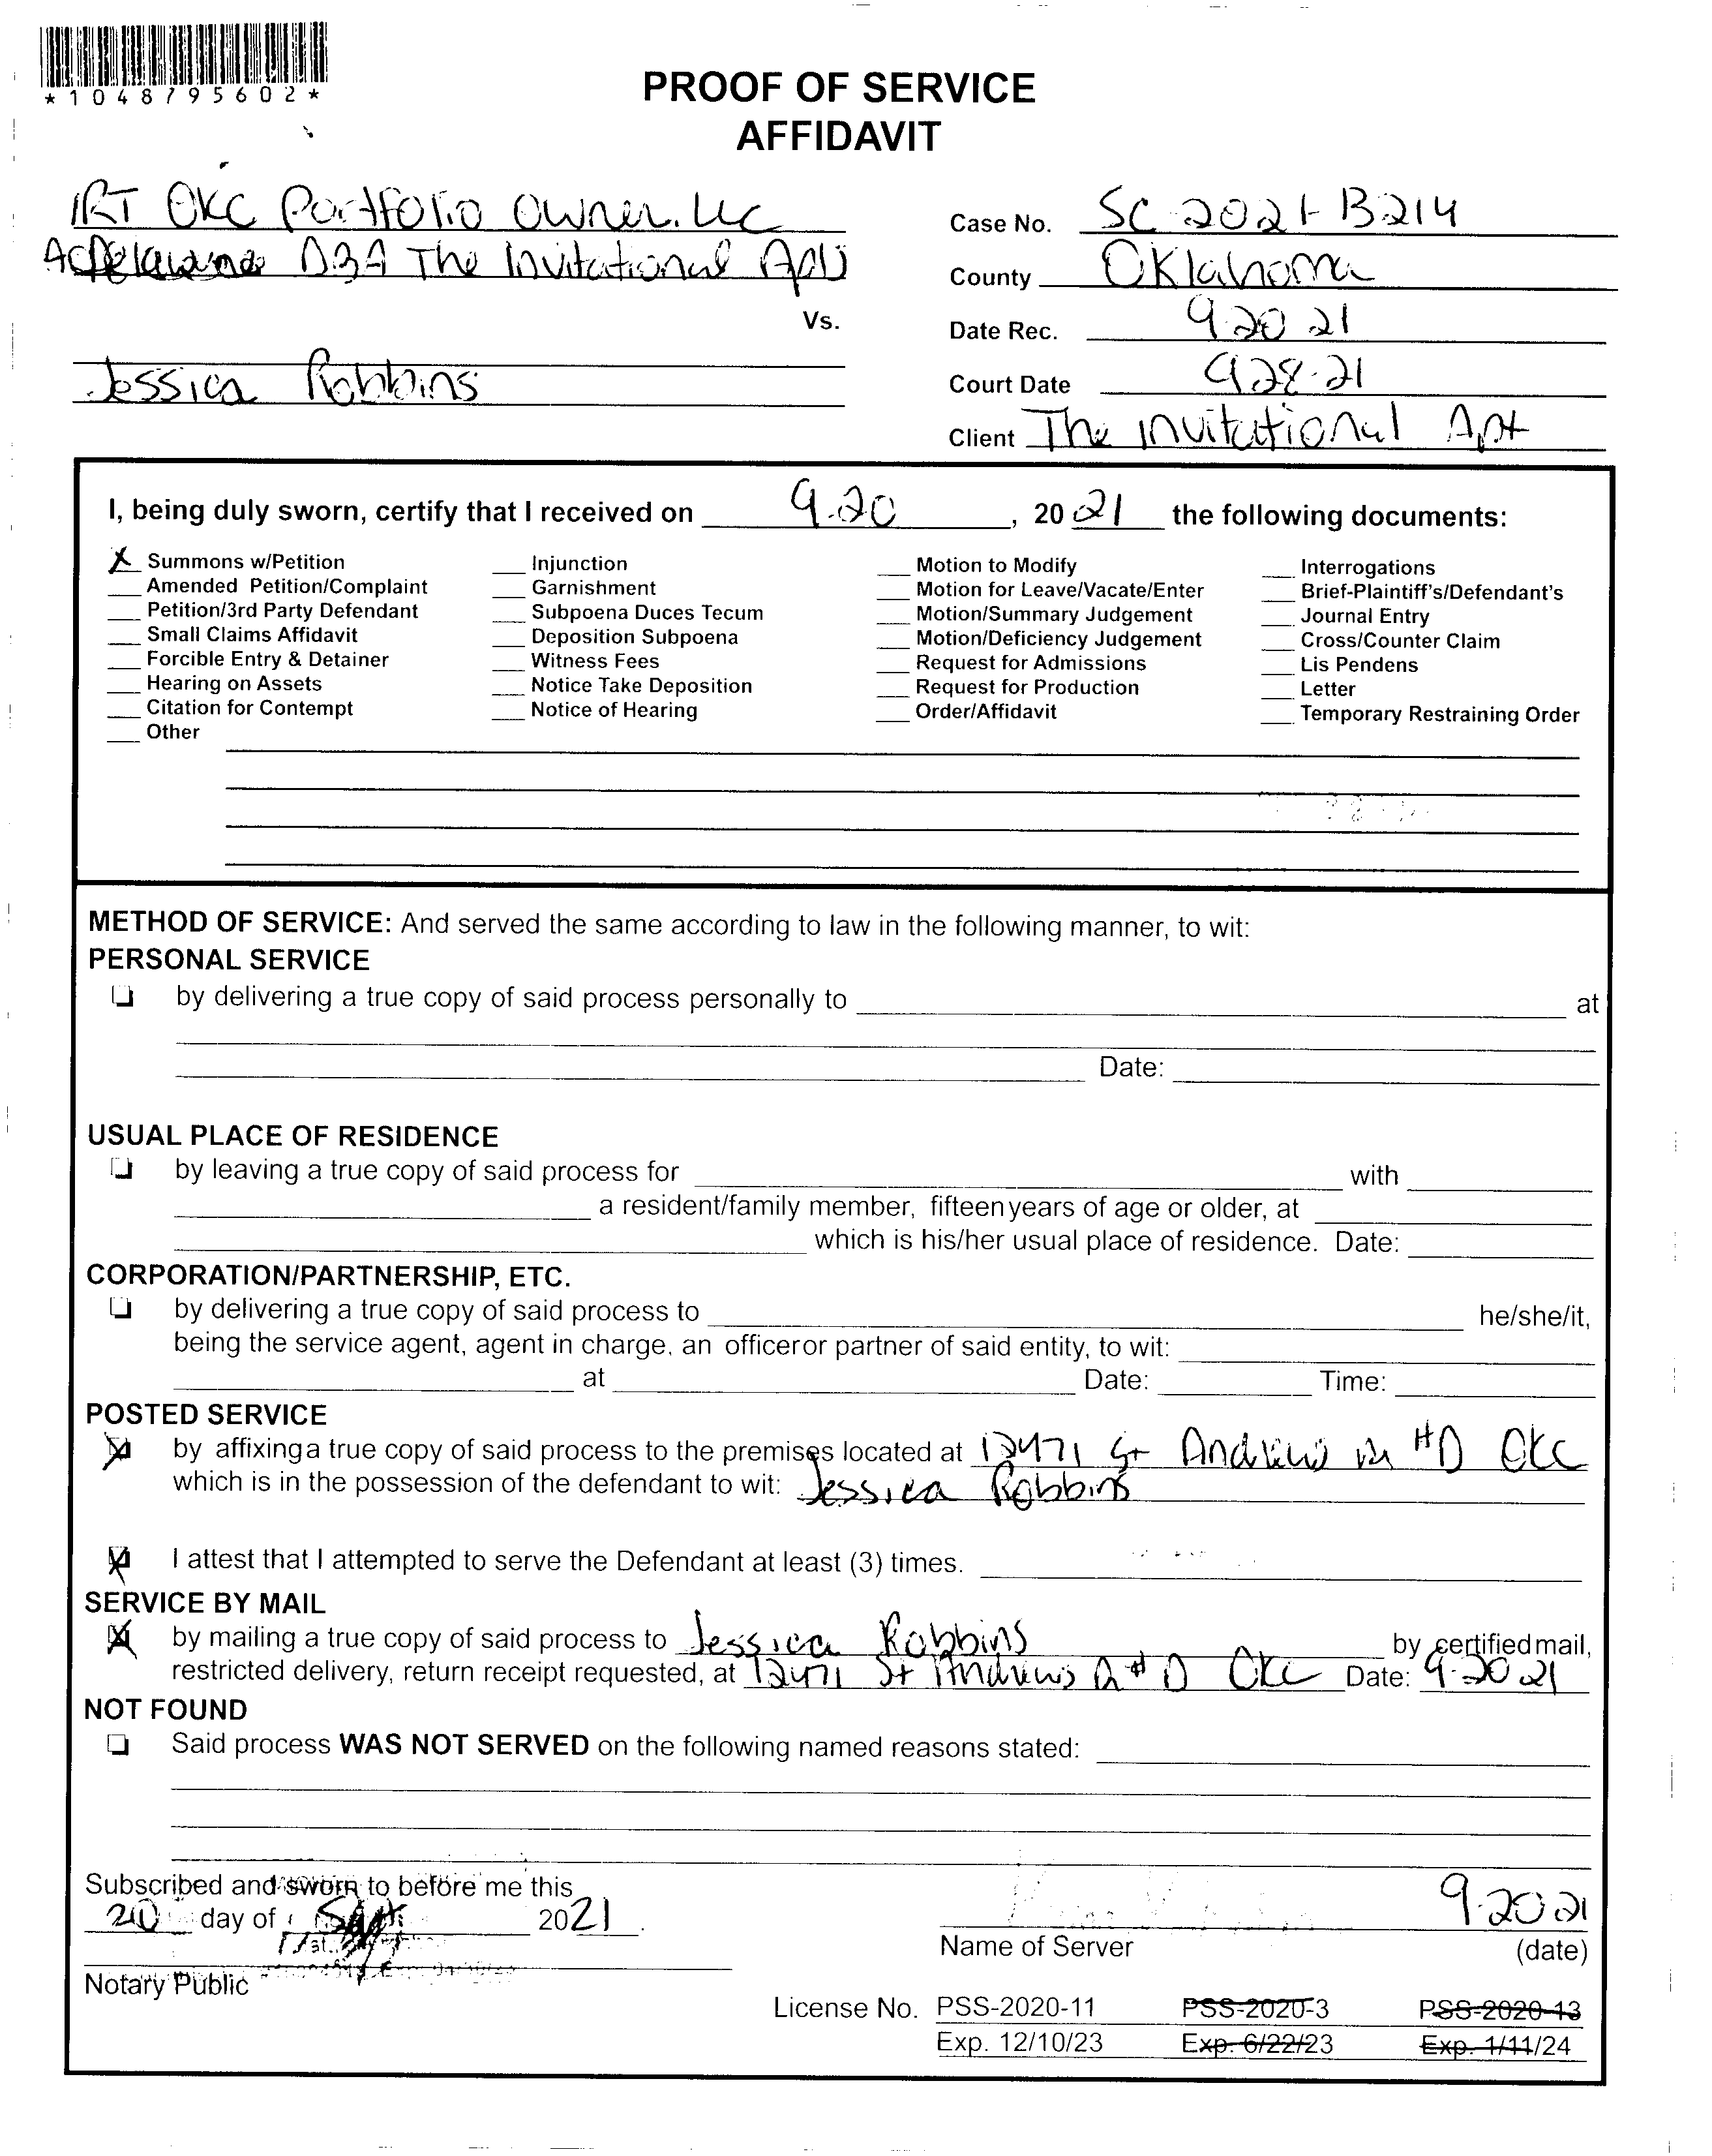 *1048795602*
PROOF OF SERVICE
AFFIDAVIT
IRT OKC Portfolio Owner. LLC
DBA The Invitational Apts
Vs.
Jessica Robbins
Case No. SC-2021-13214
County Oklahoma
Date Rec. 9.20 21
Court Date 9.28.21
Client The Invitational Apt
I, being duly sworn, certify that I received on 9.20, 2021 the following documents:
X Summons w/Petition
Amended Petition/Complaint
Petition/3rd Party Defendant
Small Claims Affidavit
Forcible Entry & Detainer
Hearing on Assets
Citation for Contempt
Other
Injunction
Garnishment
Subpoena Duces Tecum
Deposition Subpoena
Witness Fees
Notice Take Deposition
Notice of Hearing
Motion to Modify
Motion for Leave/Vacate/Enter
Motion/Summary Judgement
Motion/Deficiency Judgement
Request for Admissions
Request for Production
Order/Affidavit
Interrogations
Brief-Plaintiff's/Defendant's
Journal Entry
Cross/Counter Claim
Lis Pendens
Letter
Temporary Restraining Order
METHOD OF SERVICE: And served the same according to law in the following manner, to wit:
PERSONAL SERVICE
by delivering a true copy of said process personally to at
Date:
USUAL PLACE OF RESIDENCE
by leaving a true copy of said process for with
a resident/family member, fifteen years of age or older, at
which is his/her usual place of residence. Date:
CORPORATION/PARTNERSHIP, ETC.
by delivering a true copy of said process to he/she/it,
being the service agent, agent in charge, an officer or partner of said entity, to wit:
at Date: Time:
POSTED SERVICE
X by affixing a true copy of said process to the premises located at 12471 St Andrews Dr #D OKC
which is in the possession of the defendant to wit: Jessica Robbins
X I attest that I attempted to serve the Defendant at least (3) times.
SERVICE BY MAIL
X by mailing a true copy of said process to Jessica Robbins by certified mail,
restricted delivery, return receipt requested, at 12471 St Andrews Dr #D OKC Date: 9.20 21
NOT FOUND
Said process WAS NOT SERVED on the following named reasons stated:
Subscribed and sworn to before me this
20 day of Sept 2021
Notary Public
9.20 21
Name of Server (date)
License No. PSS-2020-11 PSS-2020-3 PSS-2020-13
Exp. 12/10/23 Exp. 6/22/23 Exp. 1/11/24